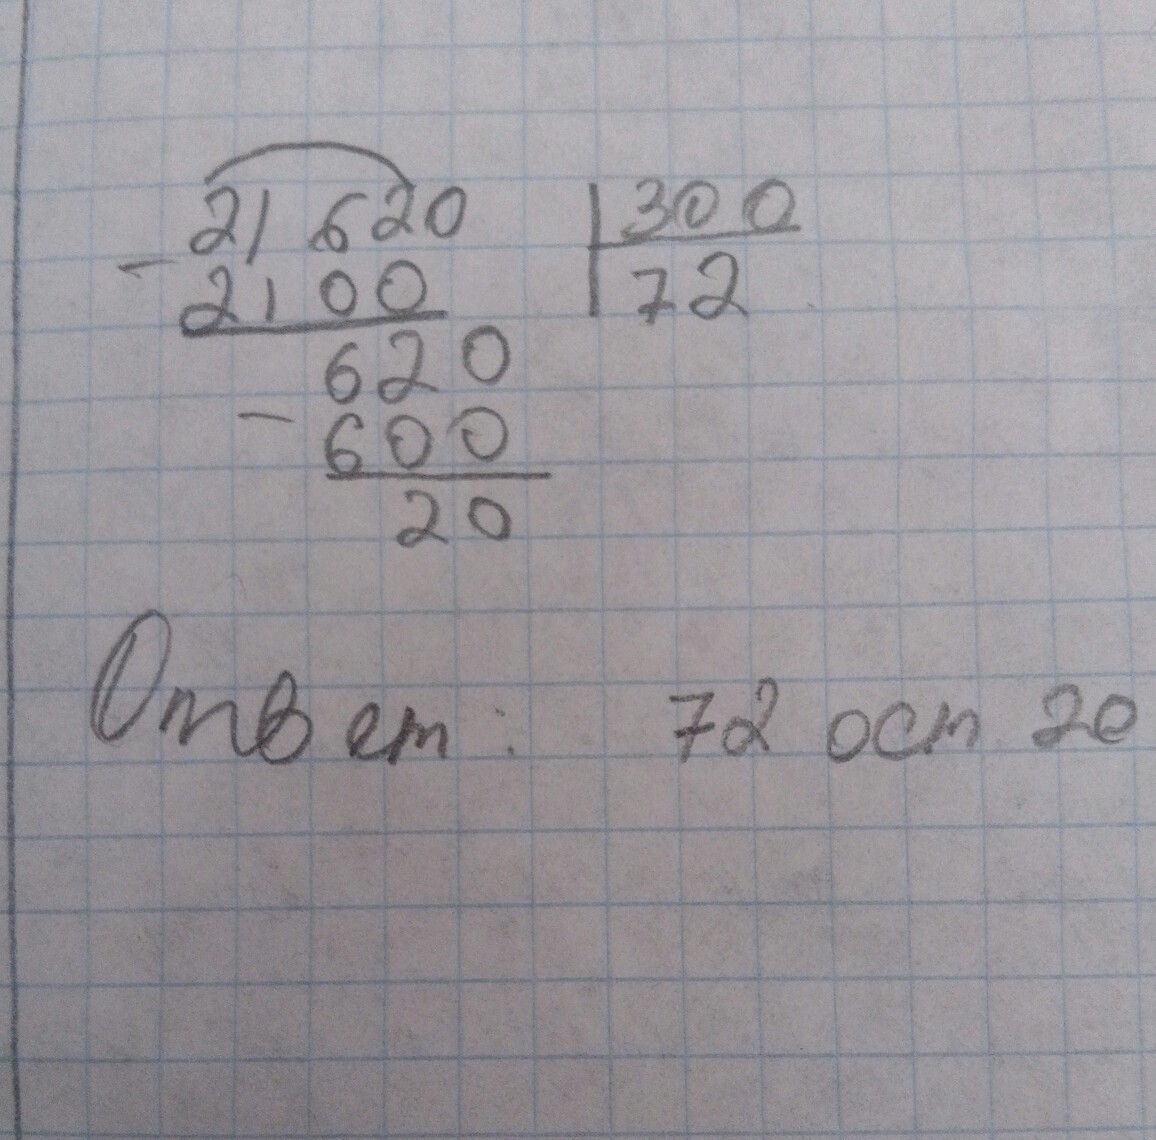 21 620 | 300
- 2100 | 72
620
- 600
20
Ответ: 72 ост 20